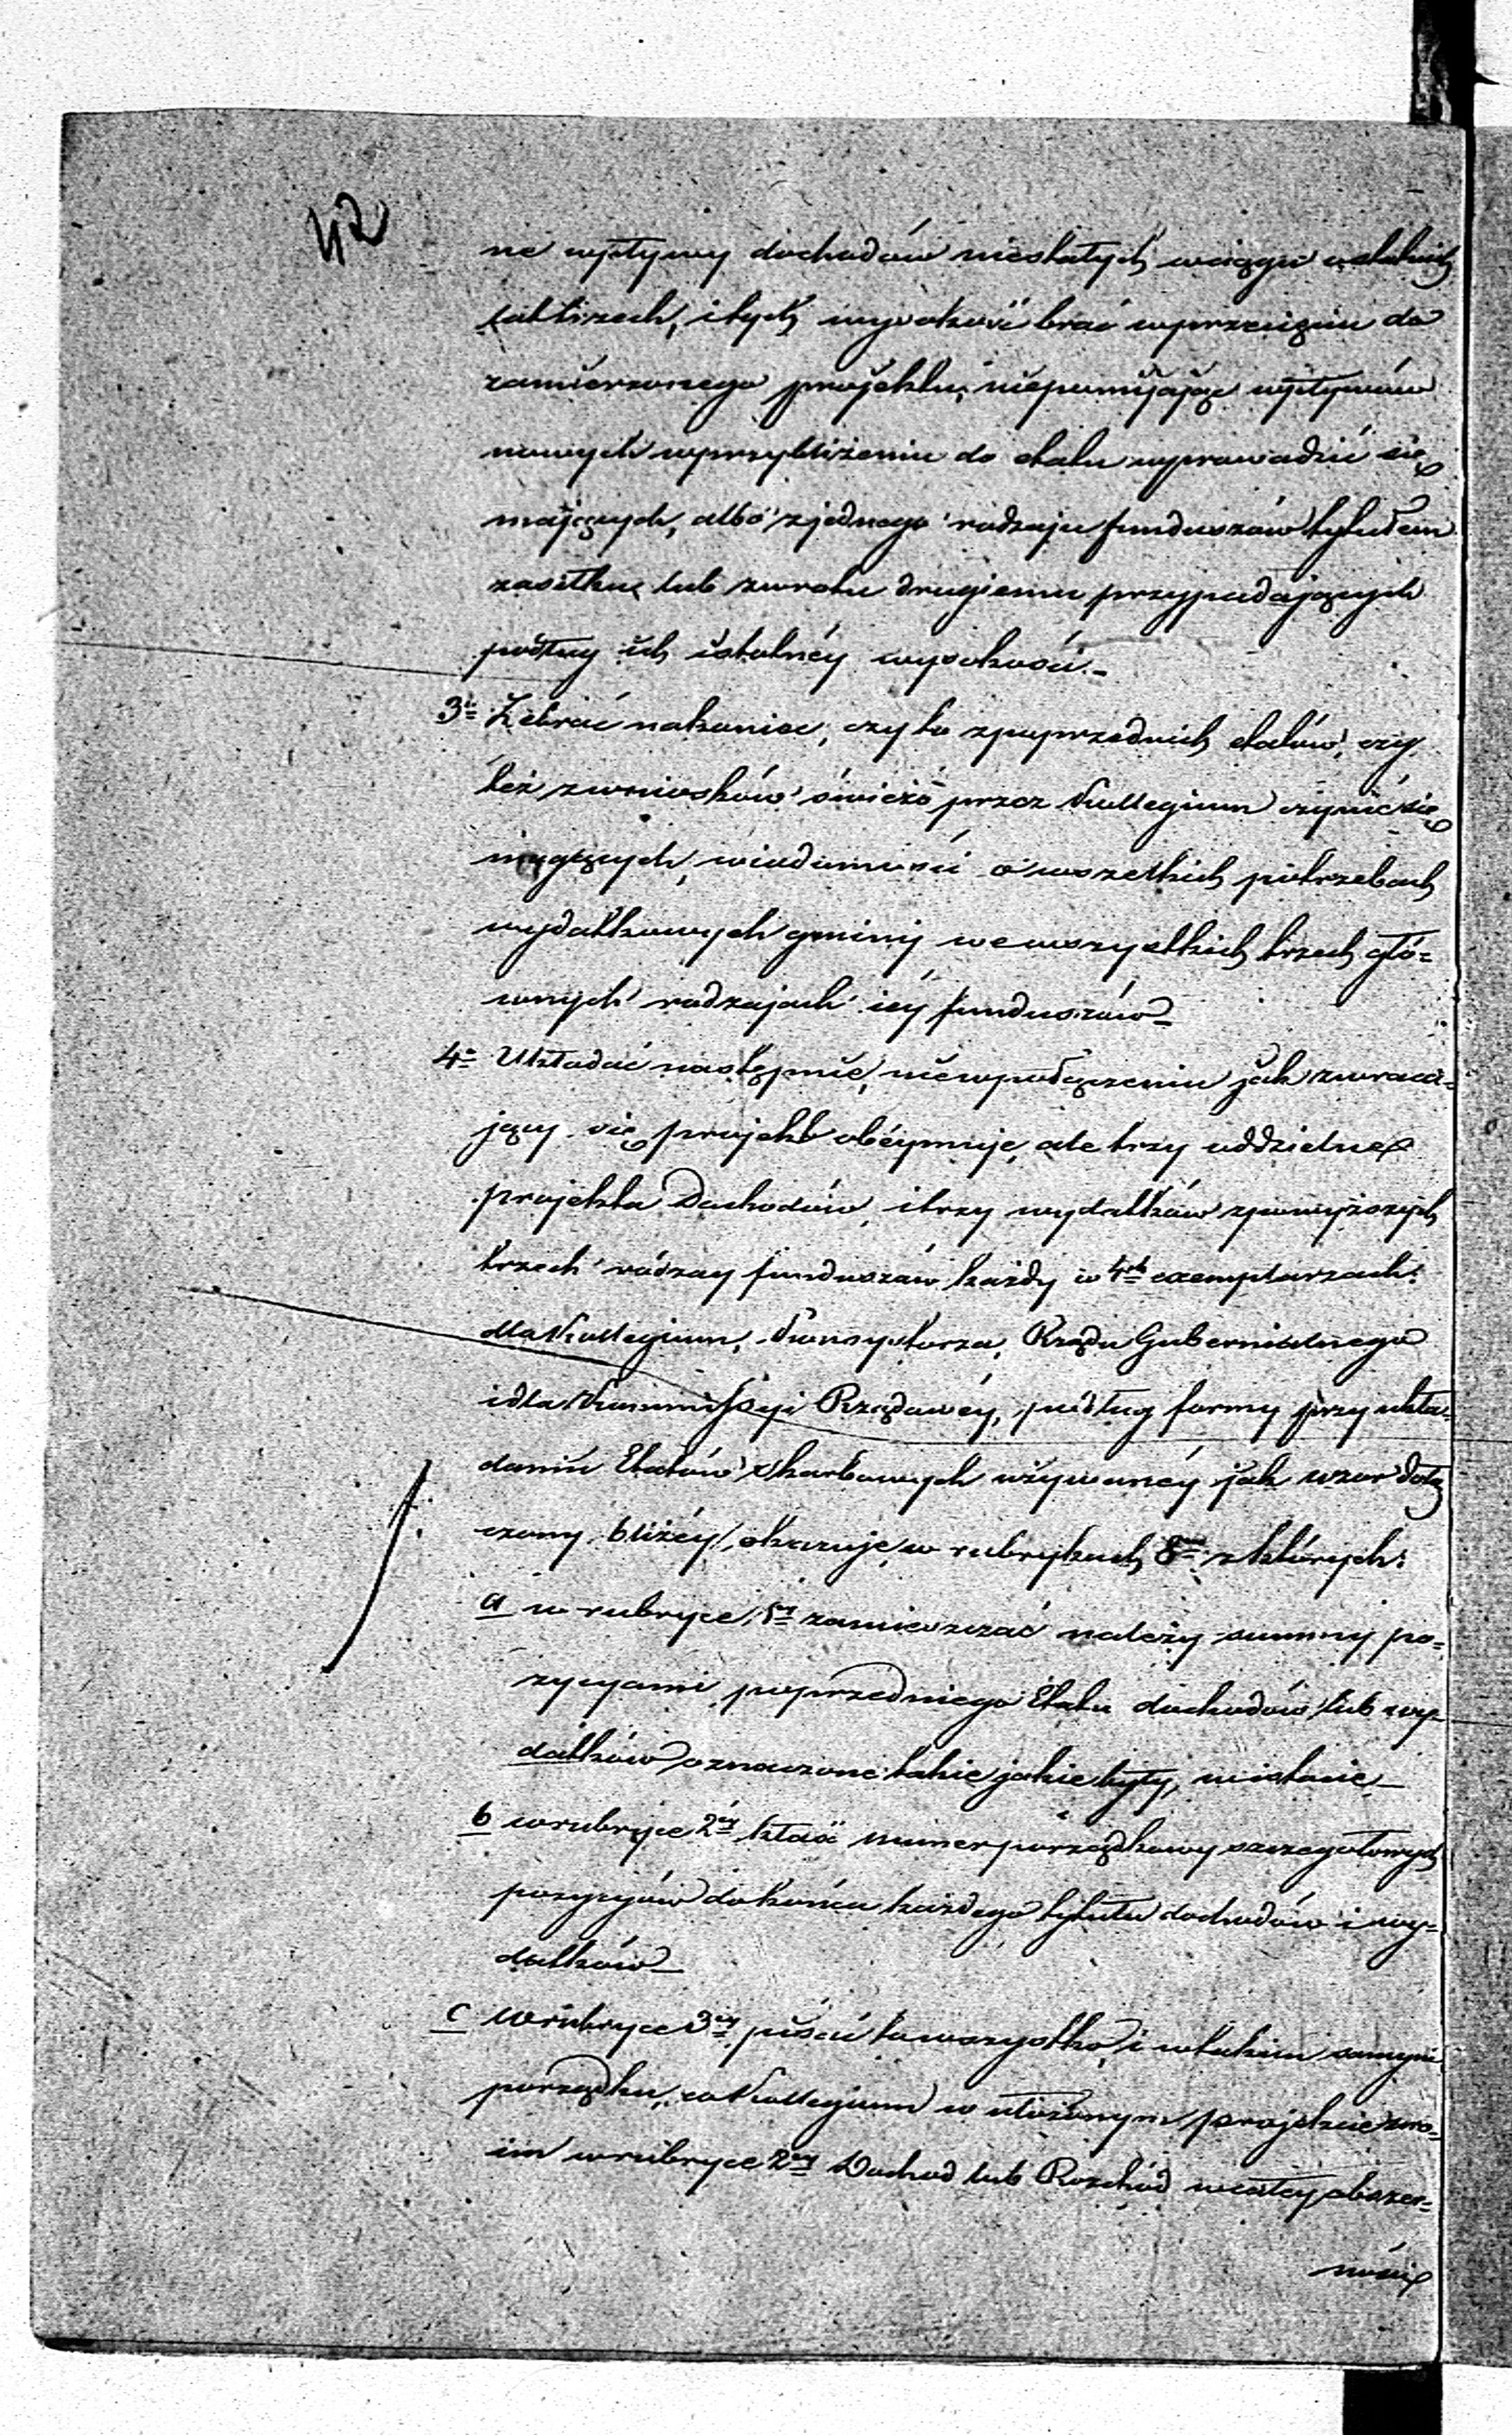 42
ne wpływy dochodów niestałych wciągu ostatnich
lat trzech, i tych wysokość brać wprzecięciu do
zamierzonego projektu, niepomijając wpływów
nowych wprzybliżeniu do etatu wprowadzić się
mających, albo z jednego rodzaju funduszów tytułem
zasiłku, lub zwrotu drugiemu przypadających
podług ich istotnéy wysokości.
3° Zebrać nakoniec, czy to zpoprzednich etatów, czy
też zwniosków świeżo przez Kollegium czynić się
mogących, wiadomość o wszelkich potrzebach
wydatkowych gminy we wszystkich trzech głó-
wnych rodzajach iéy funduszów
4° Układać następnie, niewpołączeniu jak zwraca-
jący się projekt obéymuje, ale trzy oddzielne
projekta Dochodów, i trzy wydatków zpowyższych
trzech rodzay funduszów każdy w 4ch exemplarzach:
dla Kollegium, Konsystorza, Rządu Gubernialnego
i dla Kommissyi Rządowéy, podług formy przy ukła-
daniu Etatów skarbowych używanéy jak wzor dołą
czony bliżéy okazuje, w rubrykach 8miu z których:
a w rubryce 1éy zamieszczać należy summy po-
zycyami poprzedniego Etatu dochodów lub wy-
datków oznaczone takie jakie były, w istocie
b w rubryce 2éy kłaść numer porządkowy szczegołowych
pozycyów do końca każdego tytułu dochodów i wy-
datków
c w rubryce 3éy pisać to wszystko, i w takim samym
porządku, co Kollegium w ułożonym projekcie swo-
im w rubryce 2éy Dochod lub Rozchód w całéy obszer-
ności